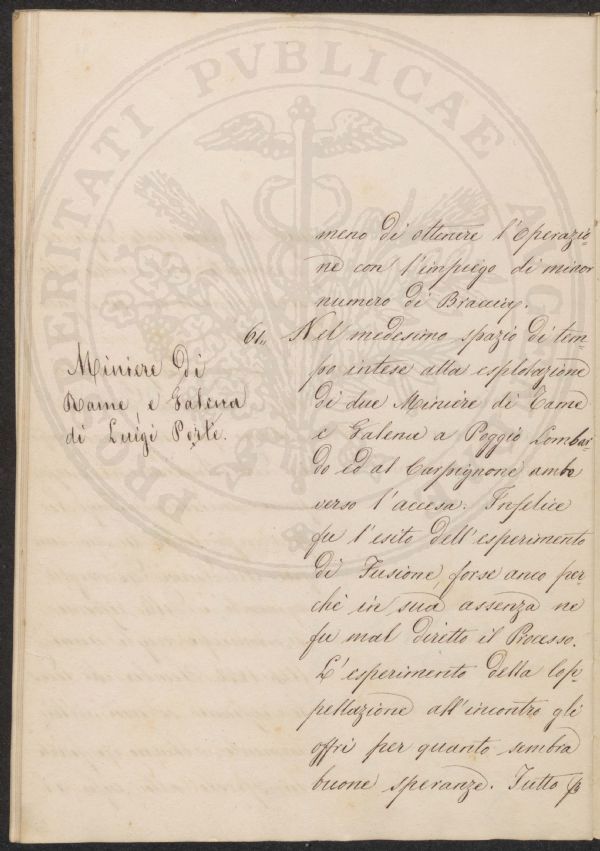 PROSPERITATI PVBLICAE AVGENDAE
meno di ottenere l'Operazio-
ne con l'impiego di minor
numero di Braccia.
61. Nel medesimo spazio di tem-
po intese alla esplotazione
di due Miniere di Rame
e Galena a Poggio Lombar-
do ed al Carpignone ambe
verso l'accesa. Infelice
fu l'esito dell'esperimento
di Fusione, forse anco per-
chè in sua assenza ne
fu mal diretto il Processo.
L'esperimento della Cop-
pellazione all'incontro gli
offrì per quanto sembra
buone speranze. Tutto
Miniere di
Rame e Galena
di Luigi Porte.